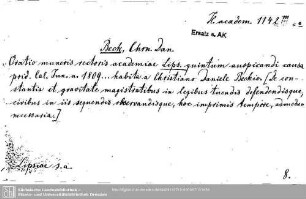 H. academ. 1142 m
Ersatz u. AK
Beck, Chrn. Dan
Oratio muneris rectoris academiae Lips. quintum auspicandi causa
prid. Cal. Jun. a. 1809... habita a Christiano Daniele Beckio. [De con-
stantia et gravitate magistratibus in legibus tuendis defendendisque,
civibus in iis sequendis observandisque, hoc imprimis tempore, admodum
necessaria.]
Lipsiae s. a.
8.